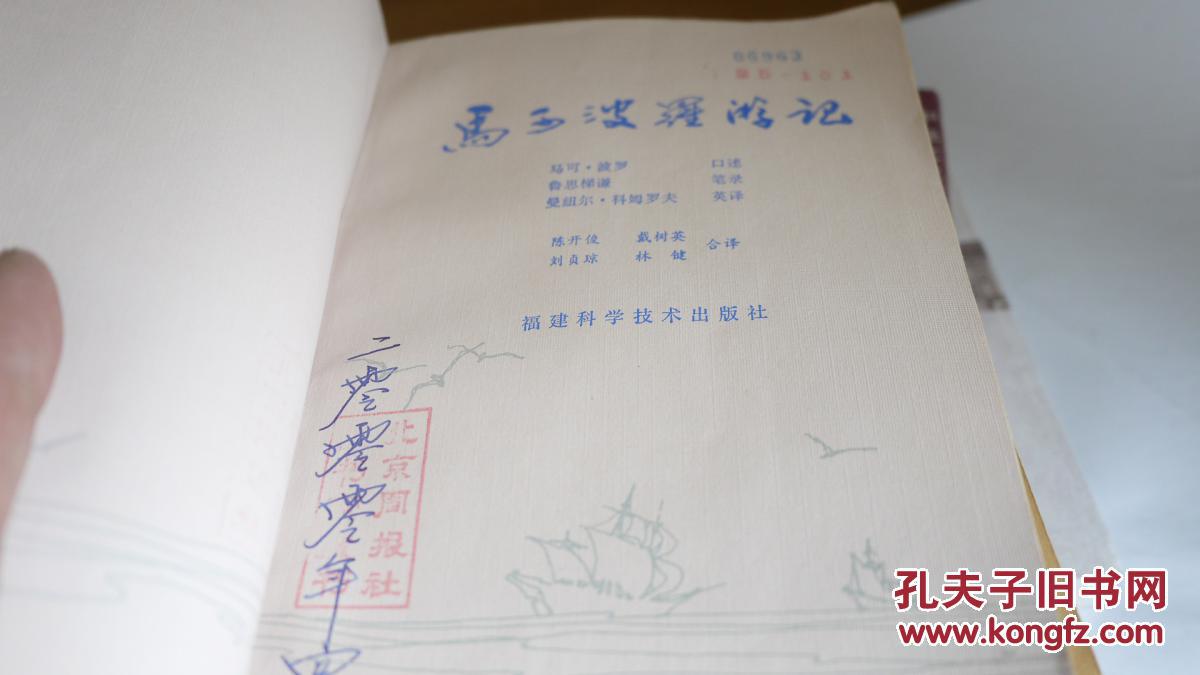 06963
25-101
馬可波羅游记
马可·波罗 口述
鲁思梯谦 笔录
曼纽尔·科姆罗夫 英译
陈开俊 戴树英
刘贞琼 林 健 合译
福建科学技术出版社
二零零零年四
北京周报社
孔夫子旧书网
www.kongfz.com